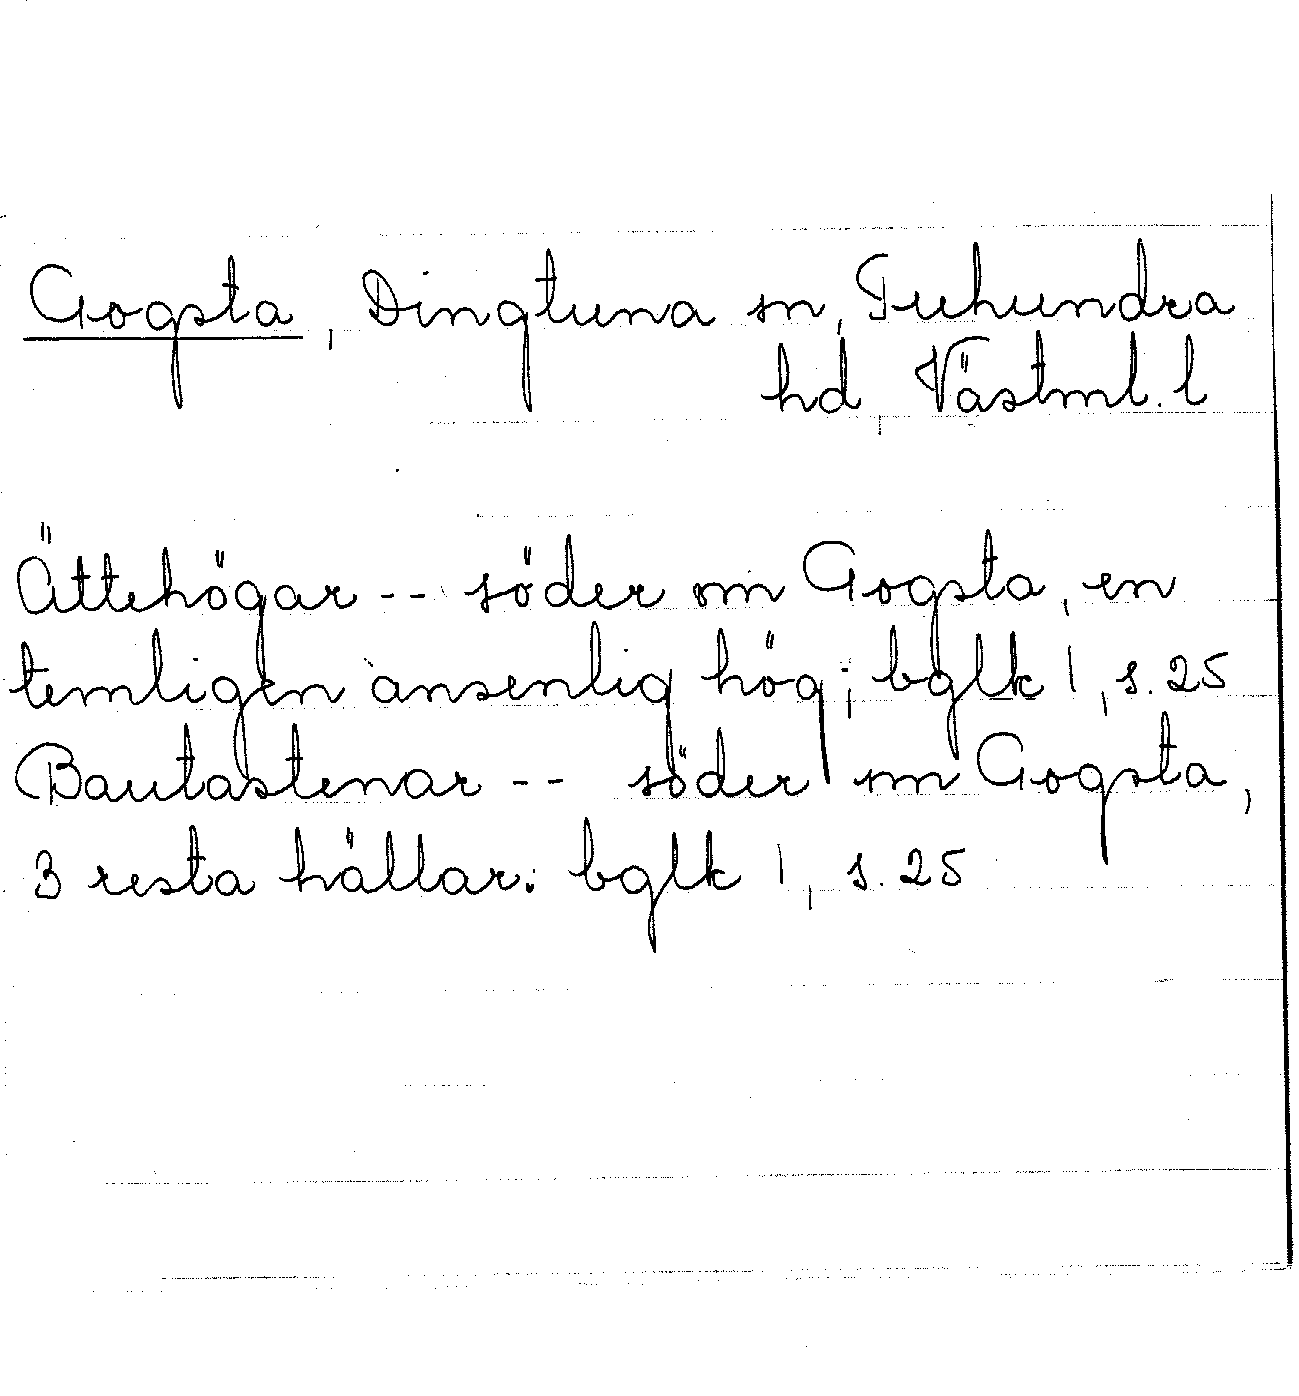 Gogsta, Dingtuna sn, Tuhundra
hd, Västml. l
Ättehögar -- söder om Gogsta, en
temligen ansenlig hög; bglk 1, s. 25
Bautastenar -- söder om Gogsta,
3 resta hällar: bglk 1, s. 25